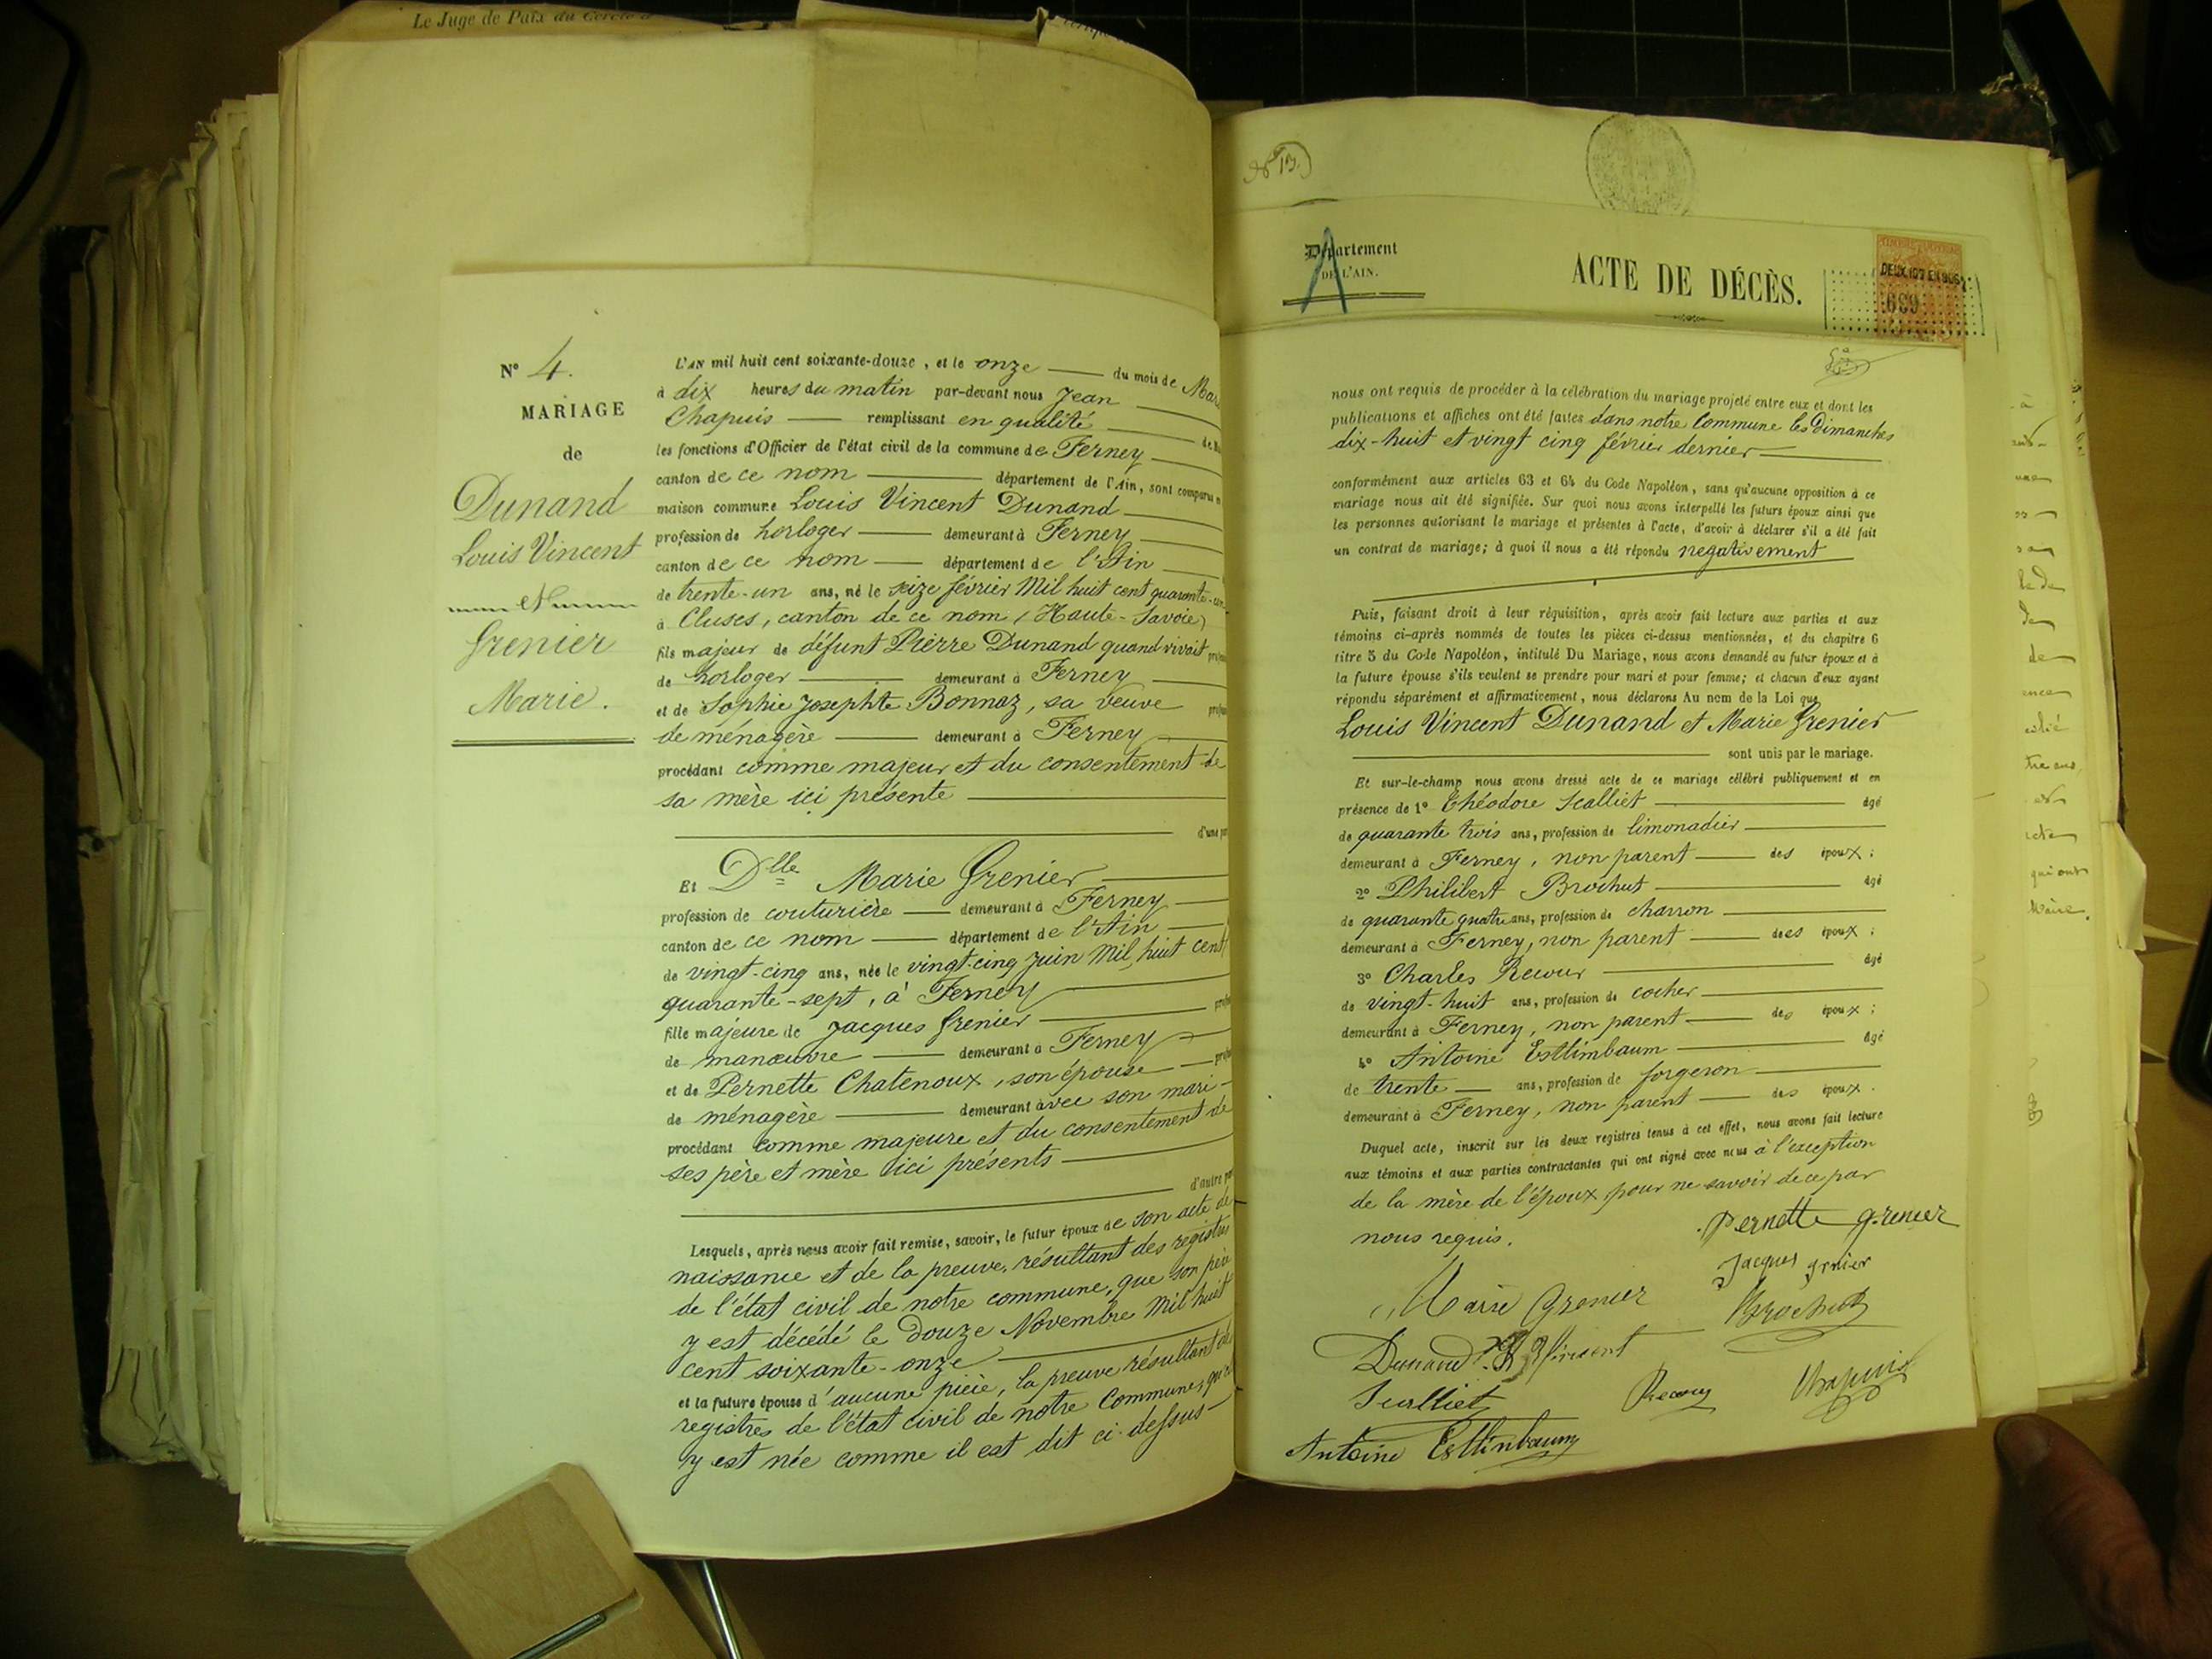 Le Juge de Paix du Cercle
N° 4.
MARIAGE
de
Dunand
Louis Vincent
et
Grenier
Marie.
L'AN mil huit cent soixante-douze, et le onze du mois de Mars
à dix heures du matin par-devant nous Jean
Chapuis remplissant en qualité de
les fonctions d'Officier de l'état civil de la commune de Ferney
canton de ce nom département de l'Ain, sont comparus
maison commune Louis Vincent Dunand
profession de horloger demeurant à Ferney
canton de ce nom département de l'Ain
de trente-un ans, né le seize février Mil huit cent quarante-un
à Cluses, canton de ce nom (Haute-Savoie)
fils majeur de défunt Pierre Dunand quand vivait
de horloger demeurant à Ferney
et de Sophie Josephte Bonnaz, sa veuve
de ménagère demeurant à Ferney
procédant comme majeur et du consentement de
sa mère ici présente
d'une
Et Dlle Marie Grenier
profession de couturière demeurant à Ferney
canton de ce nom département de l'Ain
de vingt-cinq ans, née le vingt-cinq Juin Mil huit cent
quarante-sept, à Ferney
fille majeure de Jacques Grenier
de manœuvre demeurant à Ferney
et de Pernette Chatenoux, son épouse
de ménagère demeurant avec son mari
procédant comme majeure et du consentement de
ses père et mère ici présents
d'autre
Lesquels, après nous avoir fait remise, savoir, le futur époux de son acte de
naissance et de la preuve, résultant des registres
de l'état civil de notre commune, que son père
y est décédé le Douze Novembre Mil huit
cent soixante-onze
et la future épouse d'aucune pièce, la preuve résultant de
registres de l'état civil de notre Commune, qu'
y est née comme il est dit ci-dessus
N° 13
Département
DE L'AIN.
A
ACTE DE DÉCÈS.
669
nous ont requis de procéder à la célébration du mariage projeté entre eux et dont les
publications et affiches ont été faites dans notre Commune les Dimanches
dix-huit et vingt cinq février dernier
conformément aux articles 63 et 64 du Code Napoléon, sans qu'aucune opposition à ce
mariage nous ait été signifiée. Sur quoi nous avons interpellé les futurs époux ainsi que
les personnes autorisant le mariage et présentes à l'acte, d'avoir à déclarer s'il a été fait
un contrat de mariage; à quoi il nous a été répondu negativement
Puis, faisant droit à leur réquisition, après avoir fait lecture aux parties et aux
témoins ci-après nommés de toutes les pièces ci-dessus mentionnées, et du chapitre 6
titre 5 du Code Napoléon, intitulé Du Mariage, nous avons demandé au futur époux et à
la future épouse s'ils veulent se prendre pour mari et pour femme; et chacun d'eux ayant
répondu séparément et affirmativement, nous déclarons Au nom de la Loi que
Louis Vincent Dunand et Marie Grenier
sont unis par le mariage.
Et sur-le-champ nous avons dressé acte de ce mariage célébré publiquement et en
présence de 1° Théodore Scalliet âgé
de quarante trois ans, profession de limonadier
demeurant à Ferney, non parent des époux;
2° Philibert Brochut âgé
de quarante quatre ans, profession de charron
demeurant à Ferney, non parent des époux;
3° Charles Recour âgé
de vingt-huit ans, profession de cocher
demeurant à Ferney, non parent des époux;
4° Antoine Estlimbaum âgé
de trente ans, profession de forgeron
demeurant à Ferney, non parent des époux.
Duquel acte, inscrit sur les deux registres tenus à cet effet, nous avons fait lecture
aux témoins et aux parties contractantes qui ont signé avec nous à l'exception
de la mère de l'époux pour ne savoir de ce par
nous requis.
Pernette grenier
Jacques grenier
Marie Grenier
Brochut
Dunand Vincent
Scalliet
Recour
Chapuis
Antoine Estlinbaum